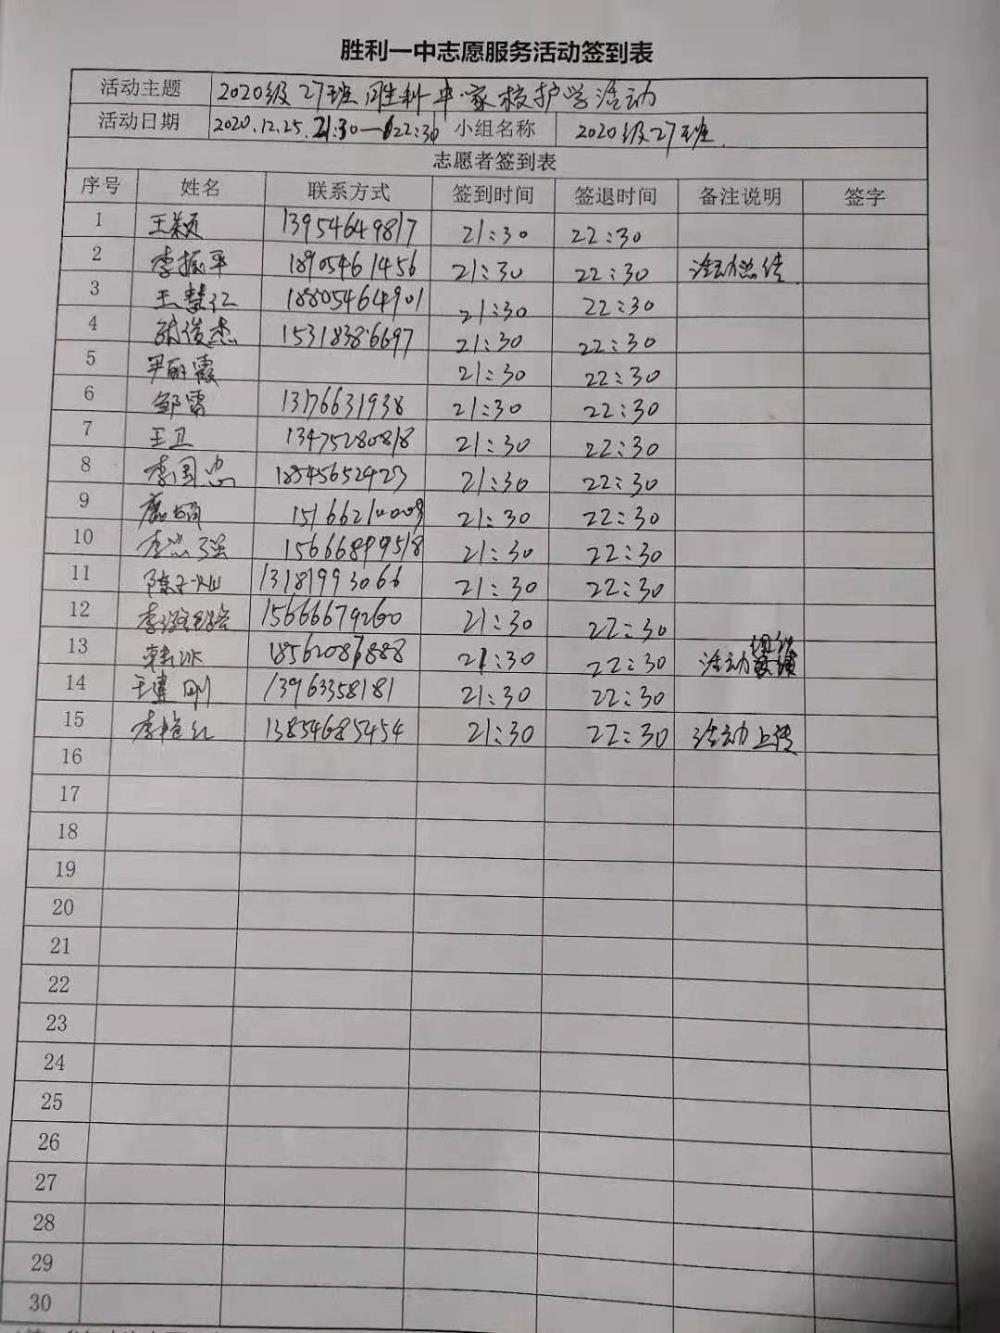 胜利一中志愿服务活动签到表
活动主题 2020级27班 胜利一中家校护学活动
活动日期 2020.12.25. 21:30—22:30 小组名称 2020级27班.
志愿者签到表
序号 姓名 联系方式 签到时间 签退时间 备注说明 签字
1 王颖 13954649817 21:30 22:30
2 李振平 18905461456 21:30 22:30 活动总结
3 王慧仁 18805464901 21:30 22:30
4 张俊杰 15318386697 21:30 22:30
5 尹丽霞 21:30 22:30
6 邹雷 13176631938 21:30 22:30
7 王卫 13475280818 21:30 22:30
8 李国忠 21:30 22:30
9 21:30 22:30
10 21:30 22:30
11 13181993066 21:30 22:30
12 15666679260 21:30 22:30
13 韩冰 18562087888 21:30 22:30 活动组织
14 王建刚 13963358181 21:30 22:30
15 李艳红 13854685454 21:30 22:30 活动上传
16
17
18
19
20
21
22
23
24
25
26
27
28
29
30